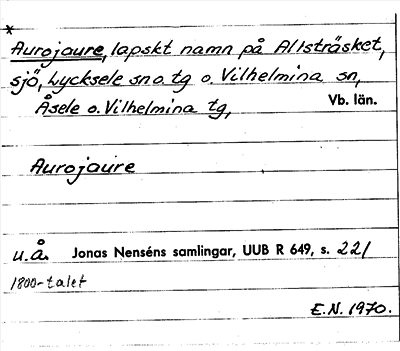 x
Aurojaure, lapskt namn på Allsträsket,
sjö, Lycksele sn o. tg o. Vilhelmina sn,
Åsele o. Vilhelmina tg,
Vb. län.
Aurojaure
u.å. Jonas Nenséns samlingar, UUB R 649, s. 221
1800-talet
E.N. 1970.